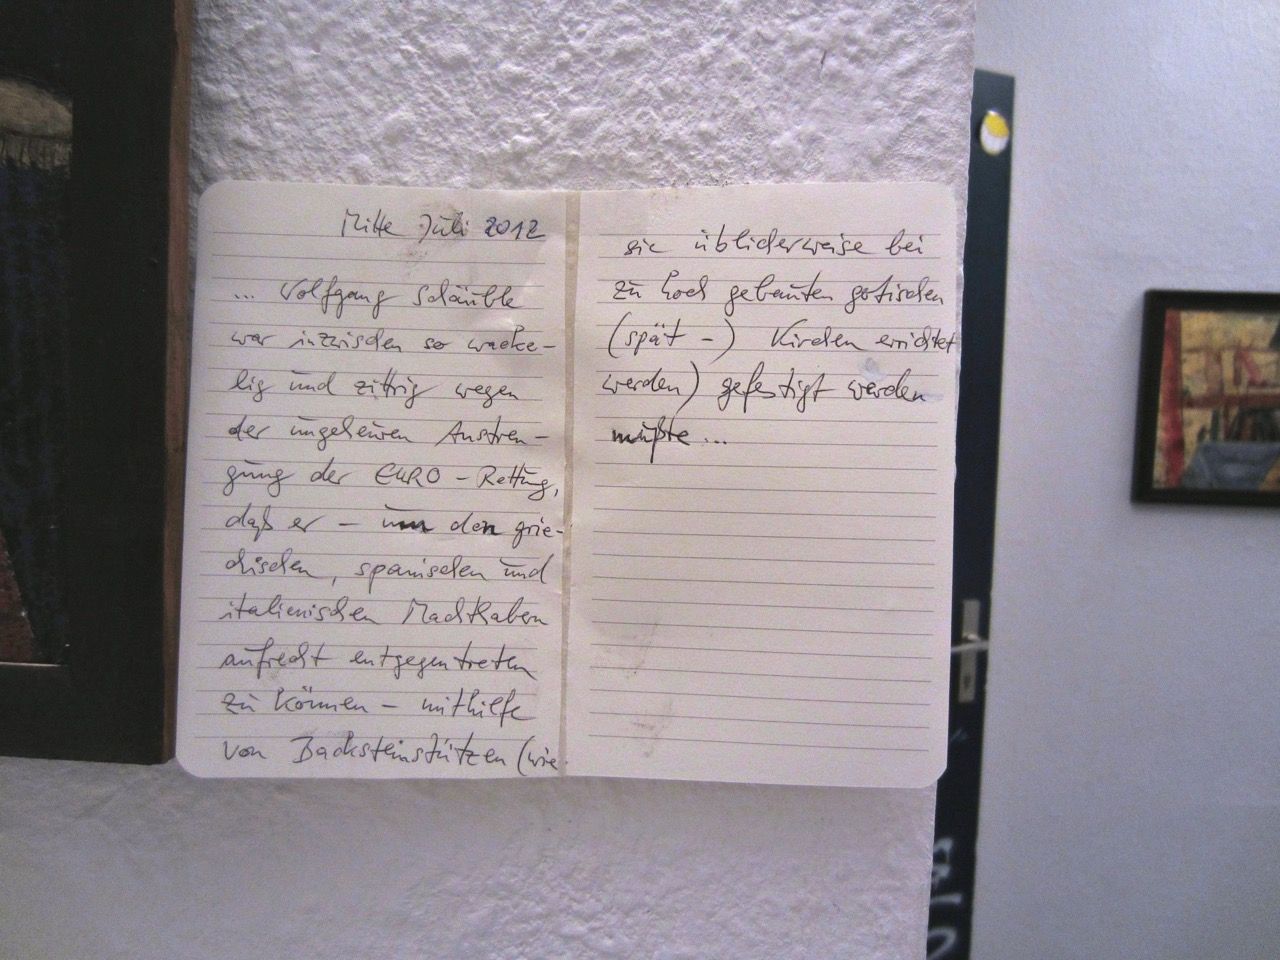 Mitte Juli 2012
... Wolfgang Schäuble
war inzwischen so wacke-
lig und zittrig wegen
der ungeheuren Anstren-
gung der EURO - Rettung,
daß er - um den grie-
chischen, spanischen und
italienischen Machthabern
aufrecht entgegentreten
zu können - mithilfe
von Backsteinstützen (wie
sie üblicherweise bei
zu hoch gebauten gotischen
(spät -) Kirchen errichtet
werden) gefestigt werden
mußte ...